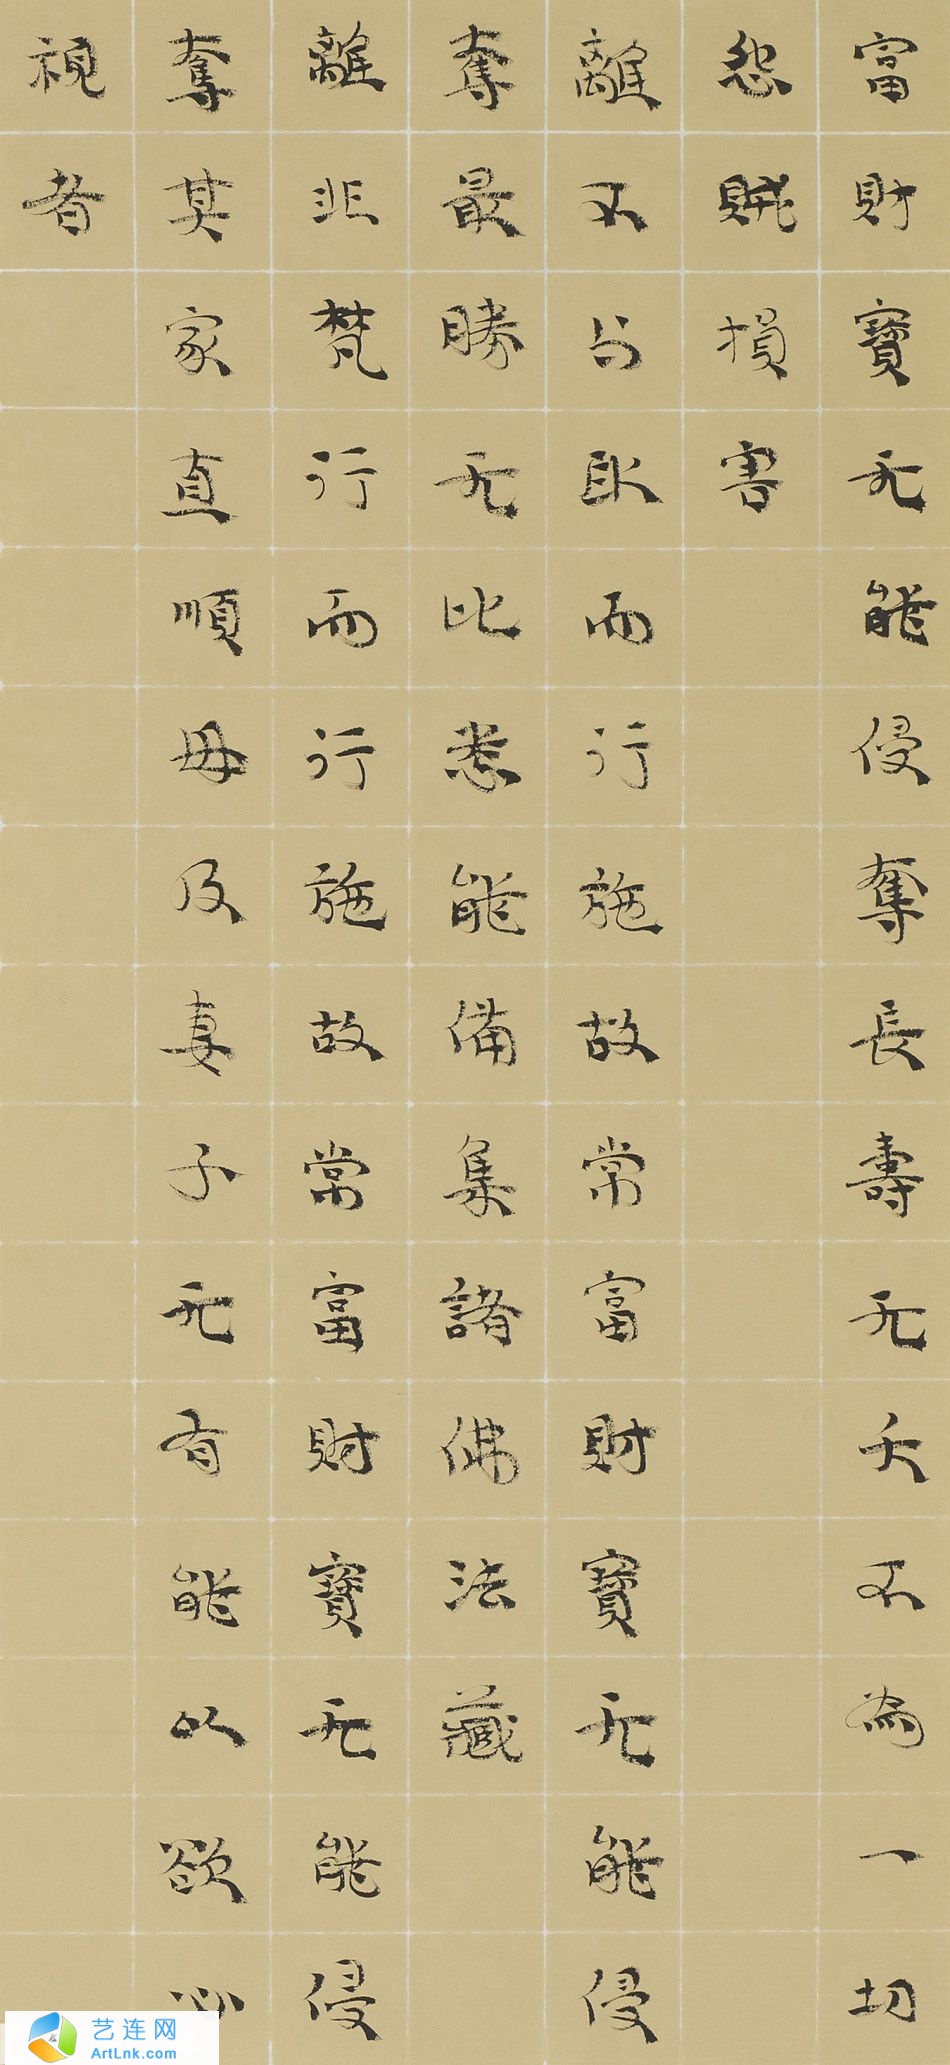 富財寶无能侵奪長壽无夭不為一切
怨賊損害
離不与取而行施故常富財寶无能侵
奪最勝无比悉能備集諸佛法藏
離非梵行而行施故常富財寶无能侵
奪其家直順母及妻子无有能以欲心
視者
艺连网
ArtLnk.com